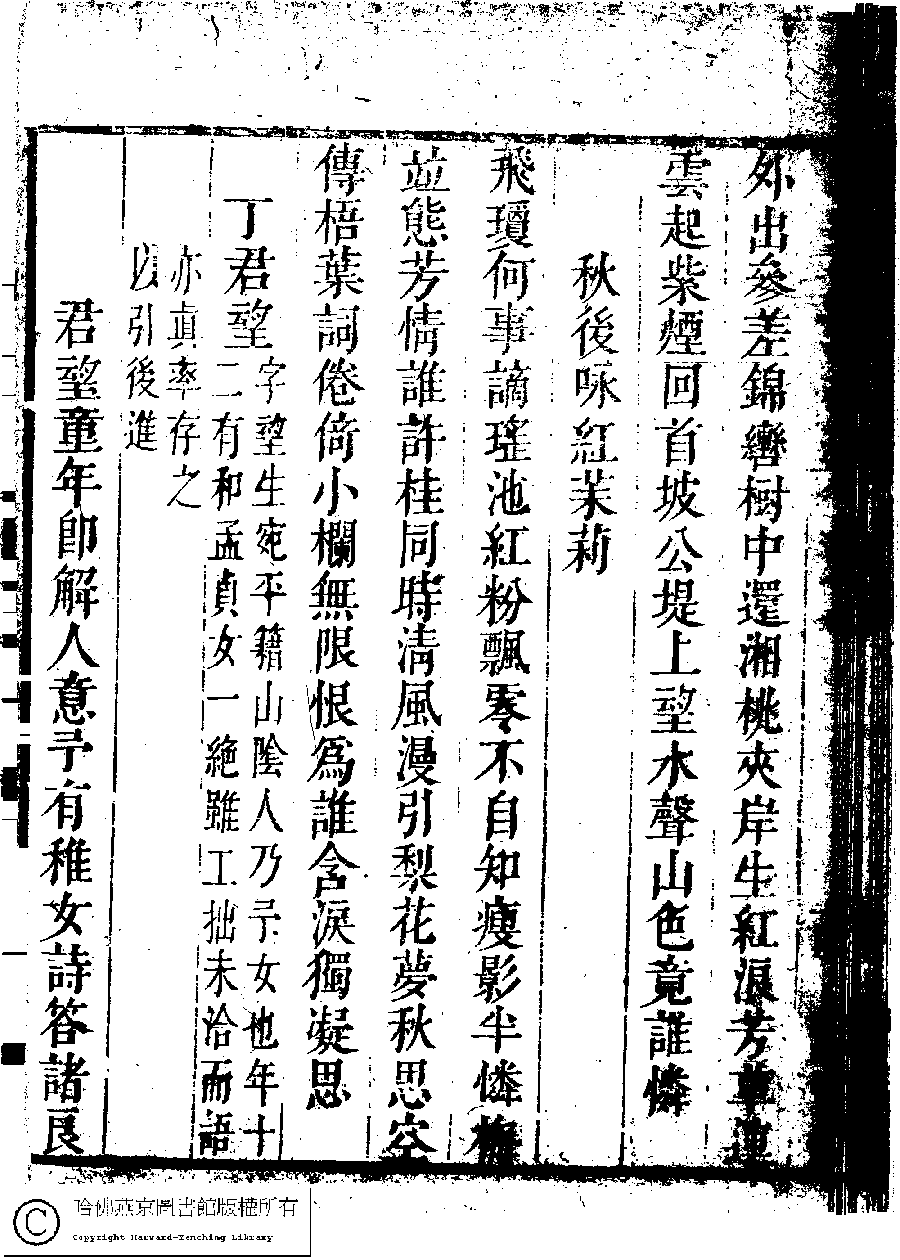 外出參差錦轡樹中還湘桃夾岸生紅浪芳草連
雲起紫煙回首坡公堤上望水聲山色竟誰憐
秋後咏紅茉莉
飛瓊何事謫瑤池紅粉飄零不自知瘦影半憐梅
並態芳情誰許桂同時淸風漫引梨花夢秋思空
傳梧葉詞倦倚小欄無限恨爲誰含淚獨凝思
丁君望
字望生宛平籍山陰人乃予女也年十
二有和孟貞女一絶雖工拙未洽而語
亦眞率存之
以引後進
君望童年卽解人意予有稚女詩答諸良
哈佛燕京圖書館版權所有
Copyright Harvard-Yenching Library